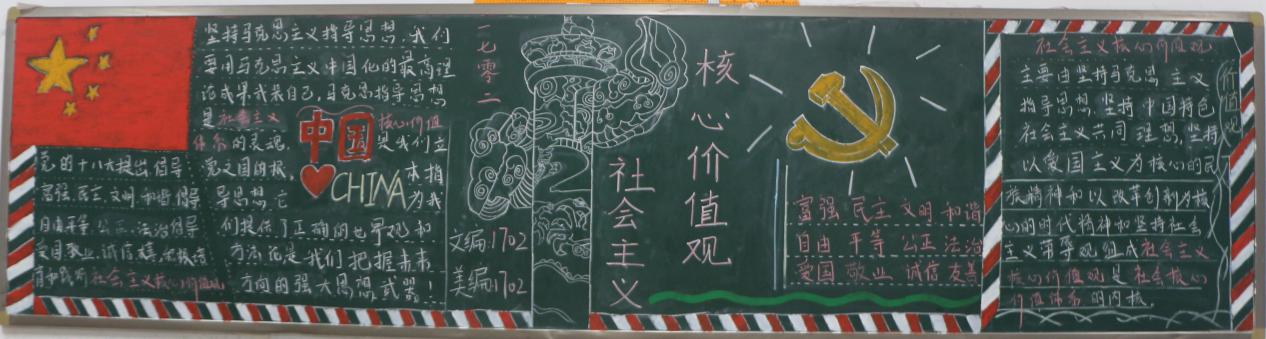 坚持马克思主义指导思想,我们
要用马克思主义中国化的最高理
论成果武装自己,马克思指导思想
是社会主义 核心价值
体系的灵魂, 是我们立
党立国的根, 本指
导思想,它 为我
们提供了正确的世界观和
方法论是我们把握未来
方向的强大思想武器!
中国
CHINA
党的十八大提出,倡导
富强、民主、文明、和谐,倡导
自由平等、公正、法治,倡导
爱国敬业、诚信友善,积极培
育和践行社会主义核心价值观
一七零二
文编:1702
美编:1702
社会主义
核心价值观
富强 民主 文明 和谐
自由 平等 公正 法治
爱国 敬业 诚信 友善
社会主义核心价值观
主要由坚持马克思主义
指导思想,坚持中国特色
社会主义共同理想,坚持
以爱国主义为核心的民
族精神和以改革创新为核
心的时代精神和坚持社会
主义荣辱观组成社会主义
核心价值观是社会核心
价值体系的内核。
价值观